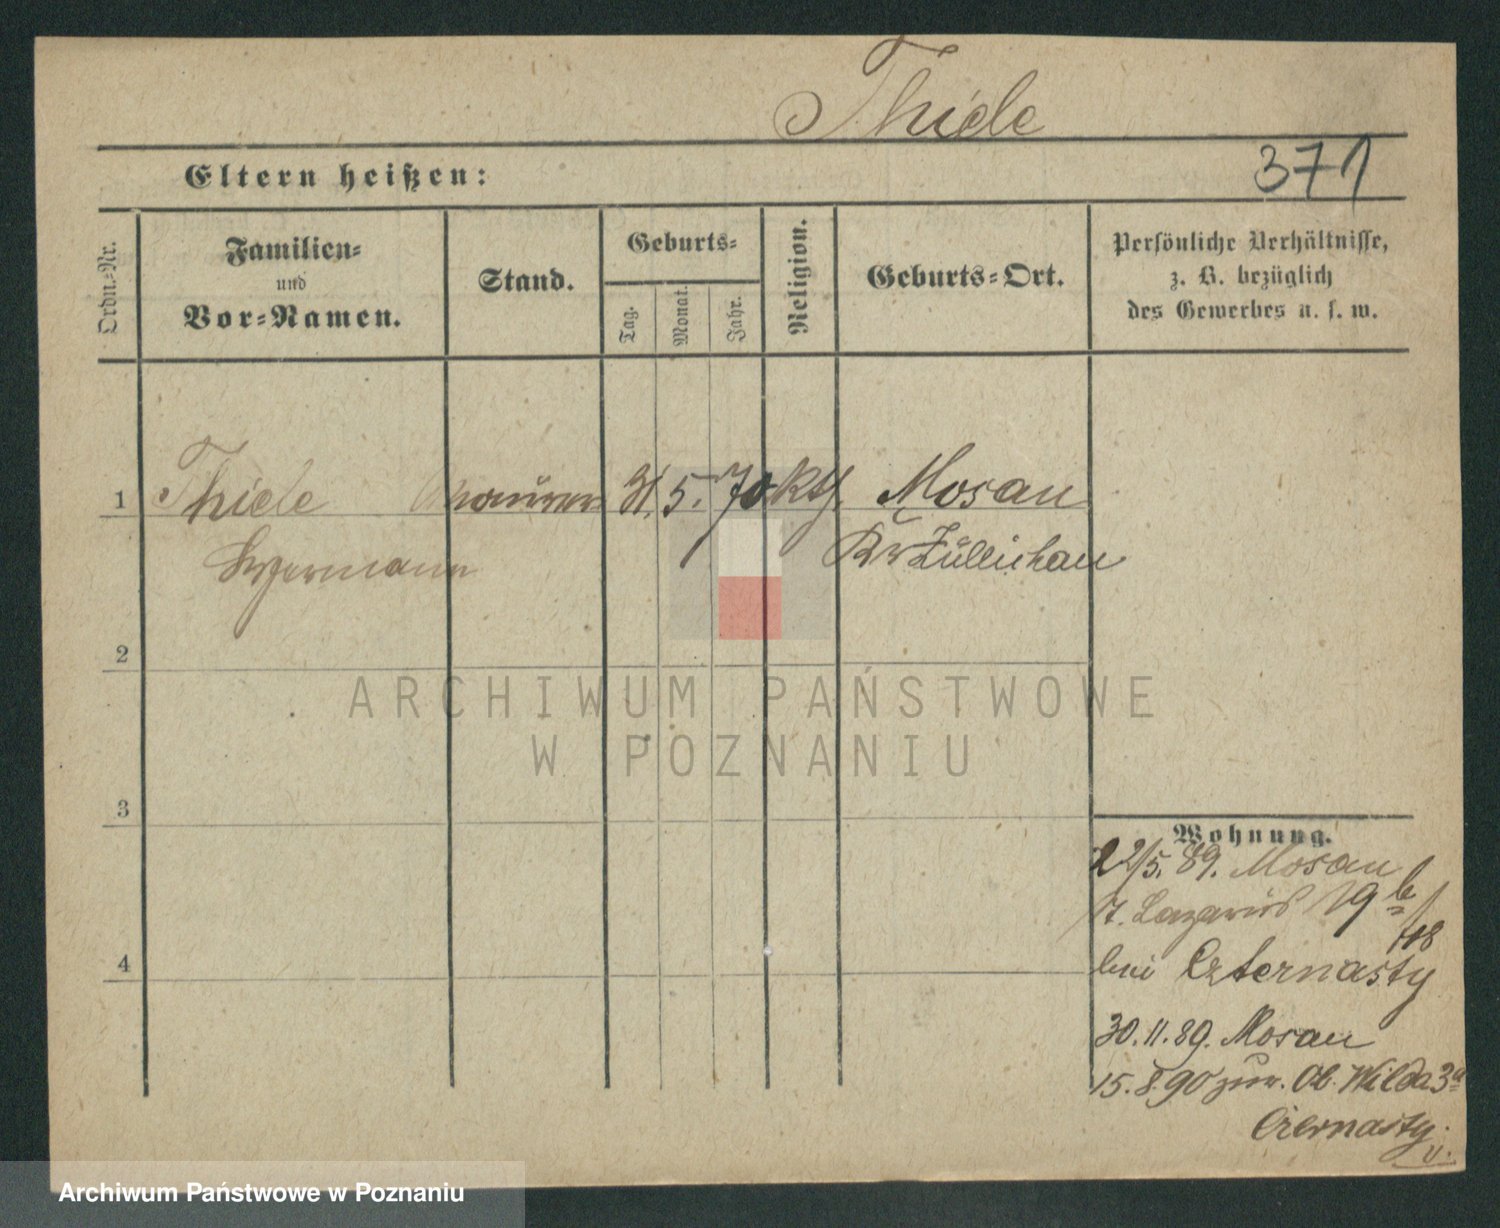 Thiele
371
Eltern heißen:
Ordn.-Nr.
Familien-
und
Vor-Namen.
Stand.
Geburts-
Tag.
Monat.
Jahr.
Religion.
Geburts-Ort.
Persönliche Verhältnisse,
z. B. bezüglich
des Gewerbes u. s. w.
1 Thiele Maurer 31. 5. 70 kth. Mosau
Hermann Kr Züllichau
2
ARCHIWUM PAŃSTWOWE
W POZNANIU
3
Wohnung.
22/5. 89. Mosau
St. Lazarus 19 b/
118
bei Czternasty
4
30. 11. 89. Mosau
15. 8. 90 zur. Ob. Wilda 3a
Czternasty.
Archiwum Państwowe w Poznaniu